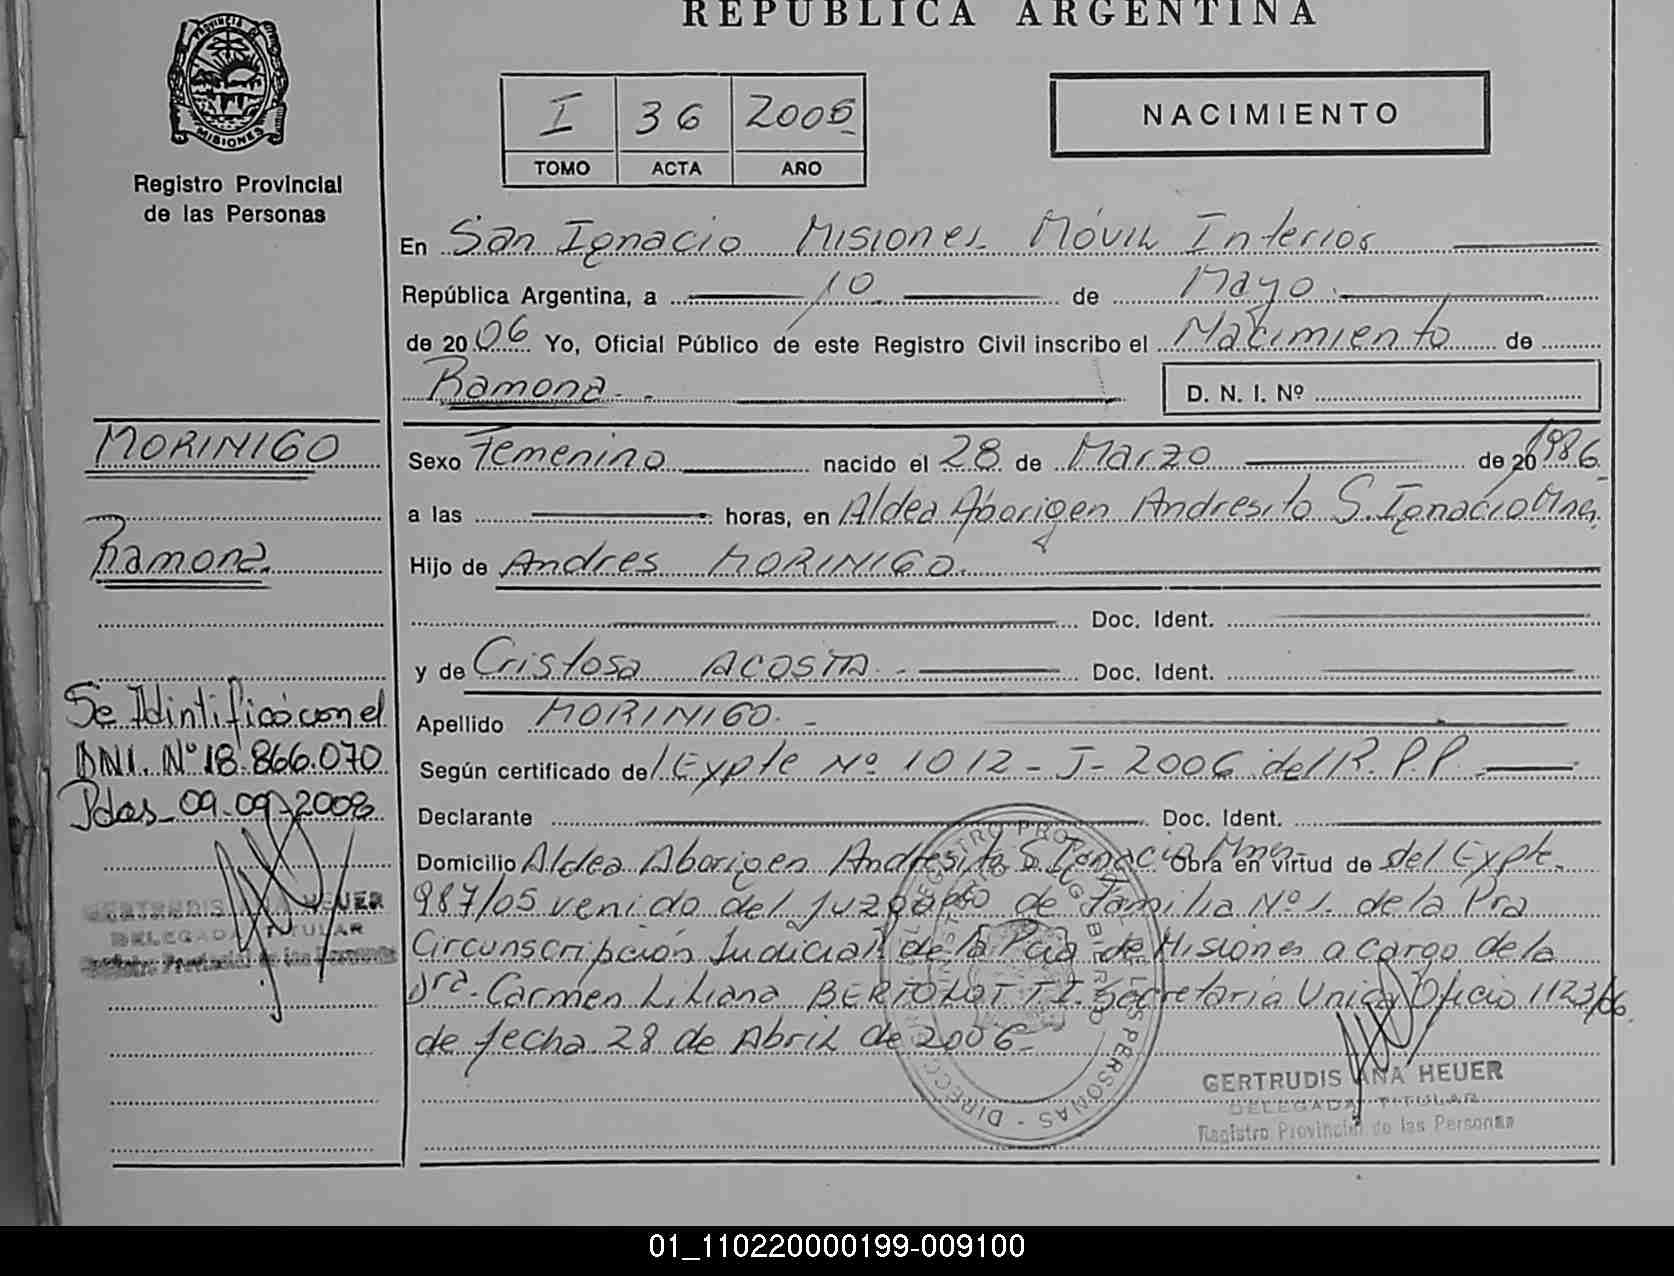 REPUBLICA ARGENTINA
PROVINCIA DE
MISIONES
Registro Provincial
de las Personas
I 36 2006
TOMO ACTA AÑO
NACIMIENTO
En San Ignacio Misiones Móvil Interior
República Argentina, a 10 de Mayo
de 2006 Yo, Oficial Público de este Registro Civil inscribo el Nacimiento de
Ramona
D. N. I. Nº
MORINIGO
Ramona
Sexo Femenino nacido el 28 de Marzo de 20 1986
a las horas, en Aldea Aborigen Andresito S. Ignacio Mnes
Hijo de Andres MORINIGO
Doc. Ident.
y de Cristosa ACOSTA Doc. Ident.
Apellido MORINIGO
Según certificado del Expte Nº 1012-J-2006 del R.P.P.
Declarante Doc. Ident.
Domicilio Aldea Aborigen Andresito S. Ignacio Mnes Obra en virtud de del Expte.
987/05 venido del Juzgado de Familia Nº 1. de la Pra
Circunscripción Judicial de la Pcia de Misiones a cargo de la
Dra. Carmen Liliana BERTOLOTTI. Secretaria Unica Oficio 1123/06.
de fecha 28 de Abril de 2006-
Se Idintificó con el
DNI. Nº 18.866.070
Pdas 09-09-2008
GERTRUDIS ANA HEUER
DELEGADA TITULAR
Registro Provincial de las Personas
GERTRUDIS ANA HEUER
DELEGADA TITULAR
Registro Provincial de las Personas
01_110220000199-009100